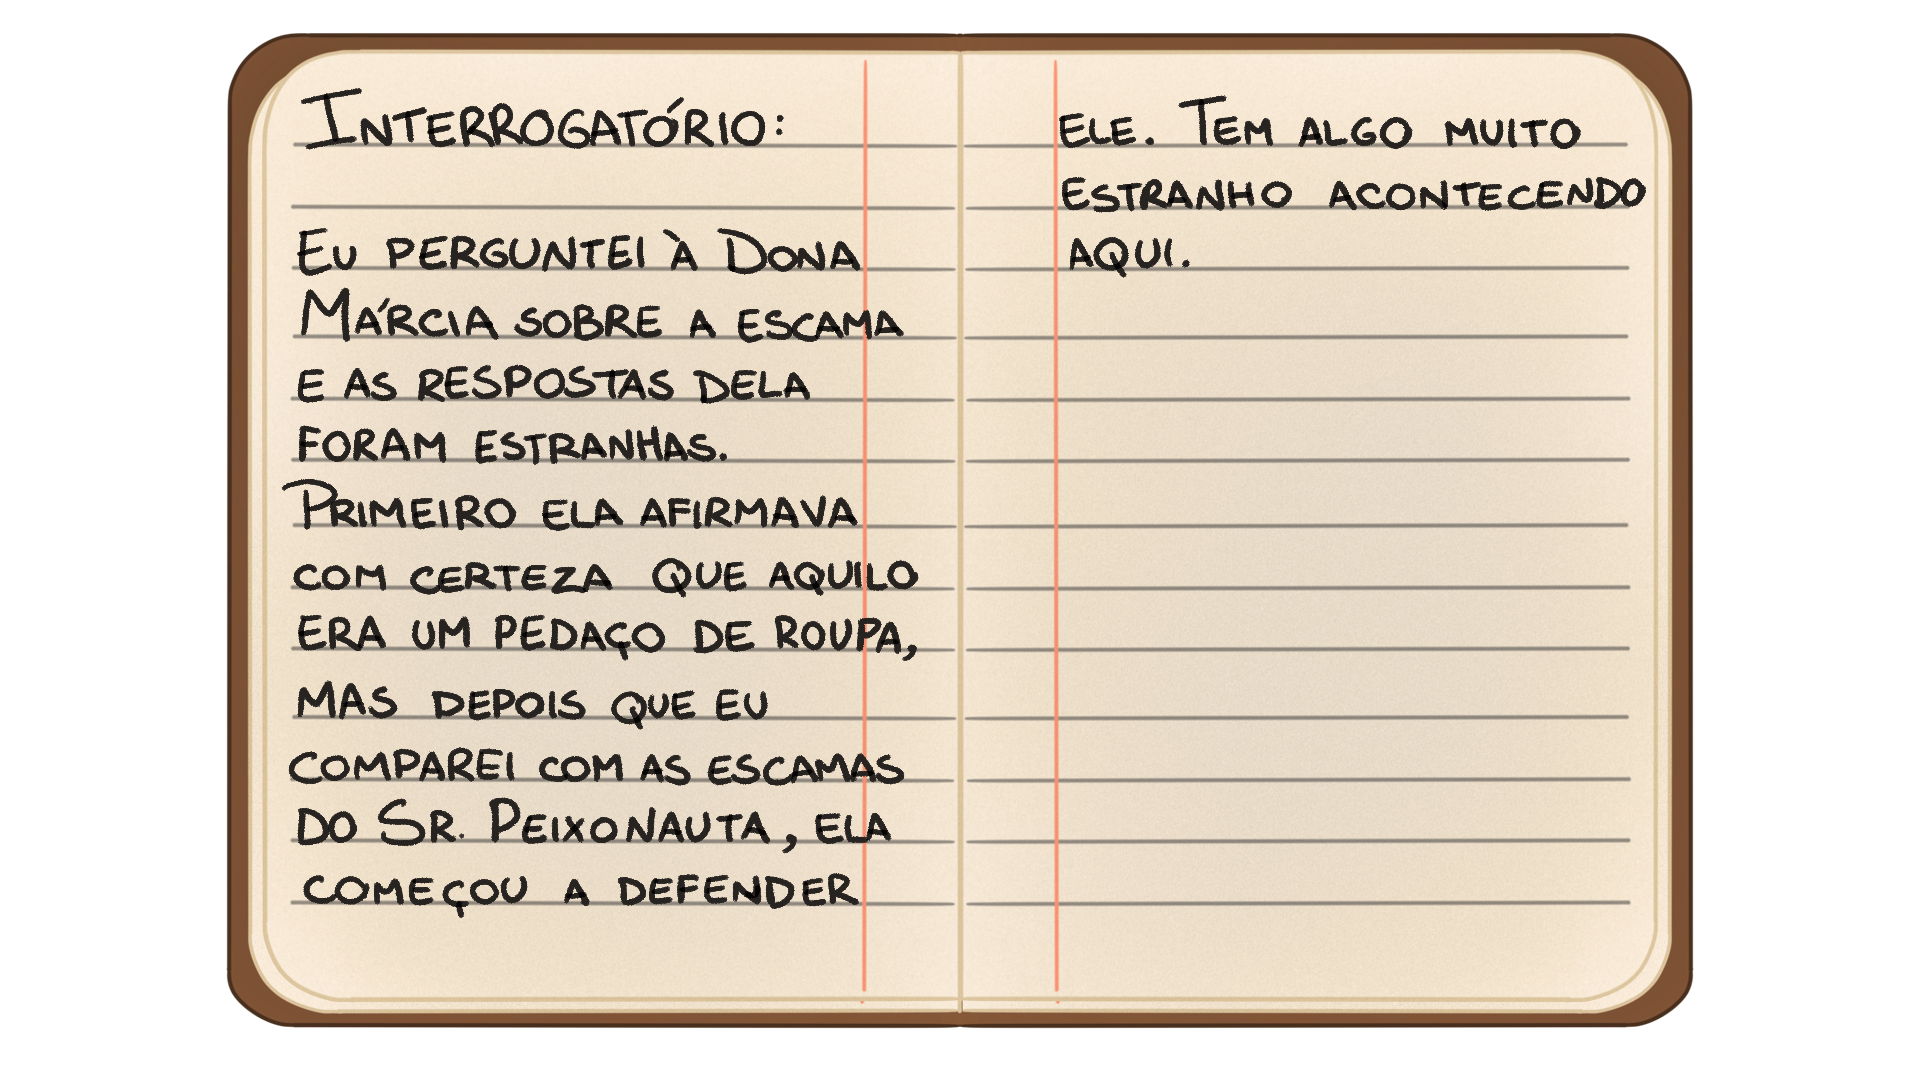 INTERROGATÓRIO:
EU PERGUNTEI À DONA
MÁRCIA SOBRE A ESCAMA
E AS RESPOSTAS DELA
FORAM ESTRANHAS.
PRIMEIRO ELA AFIRMAVA
COM CERTEZA QUE AQUILO
ERA UM PEDAÇO DE ROUPA,
MAS DEPOIS QUE EU
COMPAREI COM AS ESCAMAS
DO SR. PEIXONAUTA, ELA
COMEÇOU A DEFENDER
ELE. TEM ALGO MUITO
ESTRANHO ACONTECENDO
AQUI.